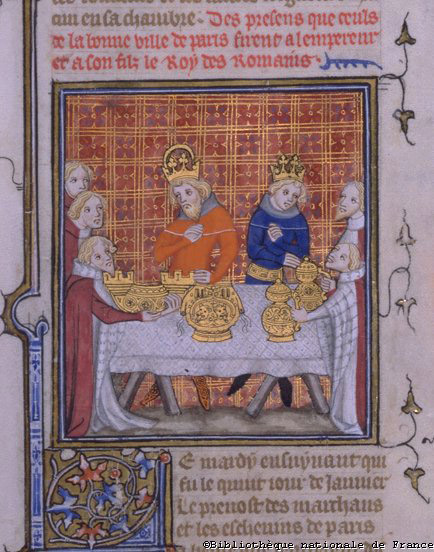 qui en sa chambre. Des presens que ceuls
de la bonne ville de paris firent a lempereur
et a son filz le Roy des Romains.
E mardy ensuyuant qui
fu le quint iour de Januier
Le preuost des marchans
et les escheuins de paris
©Bibliothèque nationale de France